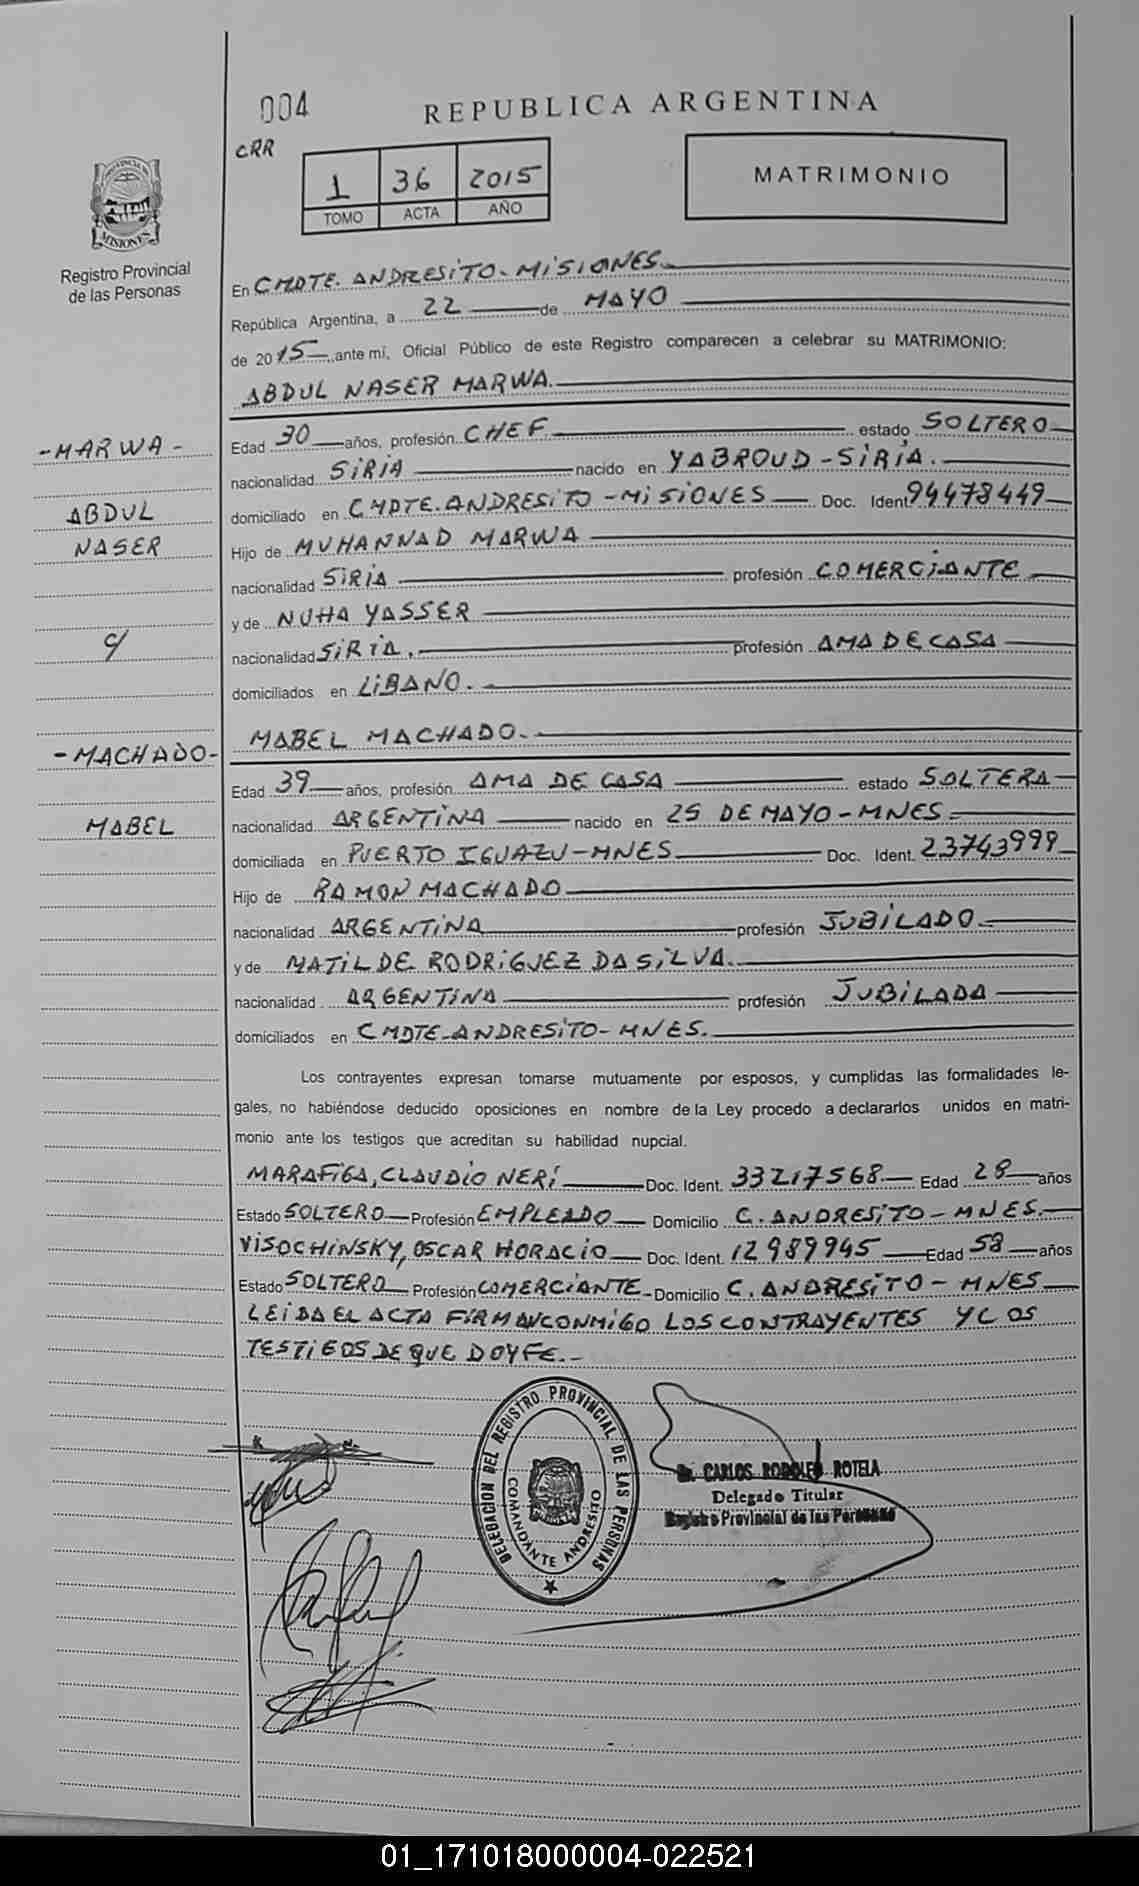 004
REPUBLICA ARGENTINA
CRR
1 36 2015
TOMO ACTA AÑO
MATRIMONIO
PROVINCIA DE MISIONES
Registro Provincial
de las Personas
En CMDTE. ANDRESITO - MISIONES.
República Argentina, a 22 de MAYO
de 2015, ante mí, Oficial Público de este Registro comparecen a celebrar su MATRIMONIO:
ABDUL NASER MARWA.
-MARWA-
ABDUL
NASER
c/
-MACHADO-
MABEL
Edad 30 años, profesión CHEF estado SOLTERO
nacionalidad SIRIA nacido en YABROUD - SIRIA.
domiciliado en CMDTE. ANDRESITO - MISIONES Doc. Ident 94478449
Hijo de MUHANNAD MARWA
nacionalidad SIRIA profesión COMERCIANTE
y de NUHA YASSER
nacionalidad SIRIA. profesión AMA DE CASA
domiciliados en LIBANO.
MABEL MACHADO.
Edad 39 años, profesión AMA DE CASA estado SOLTERA
nacionalidad ARGENTINA nacido en 25 DE MAYO - MNES
domiciliada en PUERTO IGUAZU - MNES Doc. Ident. 23743999
Hijo de RAMON MACHADO
nacionalidad ARGENTINA profesión JUBILADO
y de MATILDE RODRIGUEZ DA SILVA.
nacionalidad ARGENTINA profesión JUBILADA
domiciliados en CMDTE. ANDRESITO - MNES.
Los contrayentes expresan tomarse mutuamente por esposos, y cumplidas las formalidades le-
gales, no habiéndose deducido oposiciones en nombre de la Ley procedo a declararlos unidos en matri-
monio ante los testigos que acreditan su habilidad nupcial.
MARAFIGA, CLAUDIO NERI Doc. Ident. 33217568 Edad 28 años
Estado SOLTERO Profesión EMPLEADO Domicilio C. ANDRESITO - MNES.
VISOCHINSKY, OSCAR HORACIO Doc. Ident. 12989945 Edad 58 años
Estado SOLTERO Profesión COMERCIANTE Domicilio C. ANDRESITO - MNES
LEIDA EL ACTA FIRMAN CONMIGO LOS CONTRAYENTES Y LOS
TESTIGOS DE QUE DOY FE.-
DELEGACION DEL REGISTRO PROVINCIAL DE LAS PERSONAS
COMANDANTE ANDRESITO
Dr. CARLOS RODOLFO ROTELA
Delegado Titular
Registro Provincial de las Personas
01_171018000004-022521